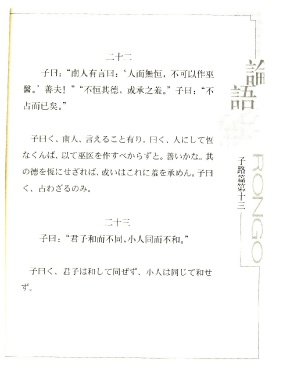 二十二
子曰：“南人有言曰：‘人而無恒，不可以作巫
醫。’善夫！”“不恒其德，或承之羞。”子曰：“不
占而已矣。”
子曰く、南人、言えること有り。曰く、人にして恆
なくんば、以て巫医を作すべからずと。善いかな。其
の徳を恆にせざれば、或いはこれに羞を承めん。子曰
く、占わざるのみ。
二十三
子曰：“君子和而不同，小人同而不和。”
子曰く、君子は和して同ぜず、小人は同じて和せ
ず。
論
語
RONGO
子路篇第十三